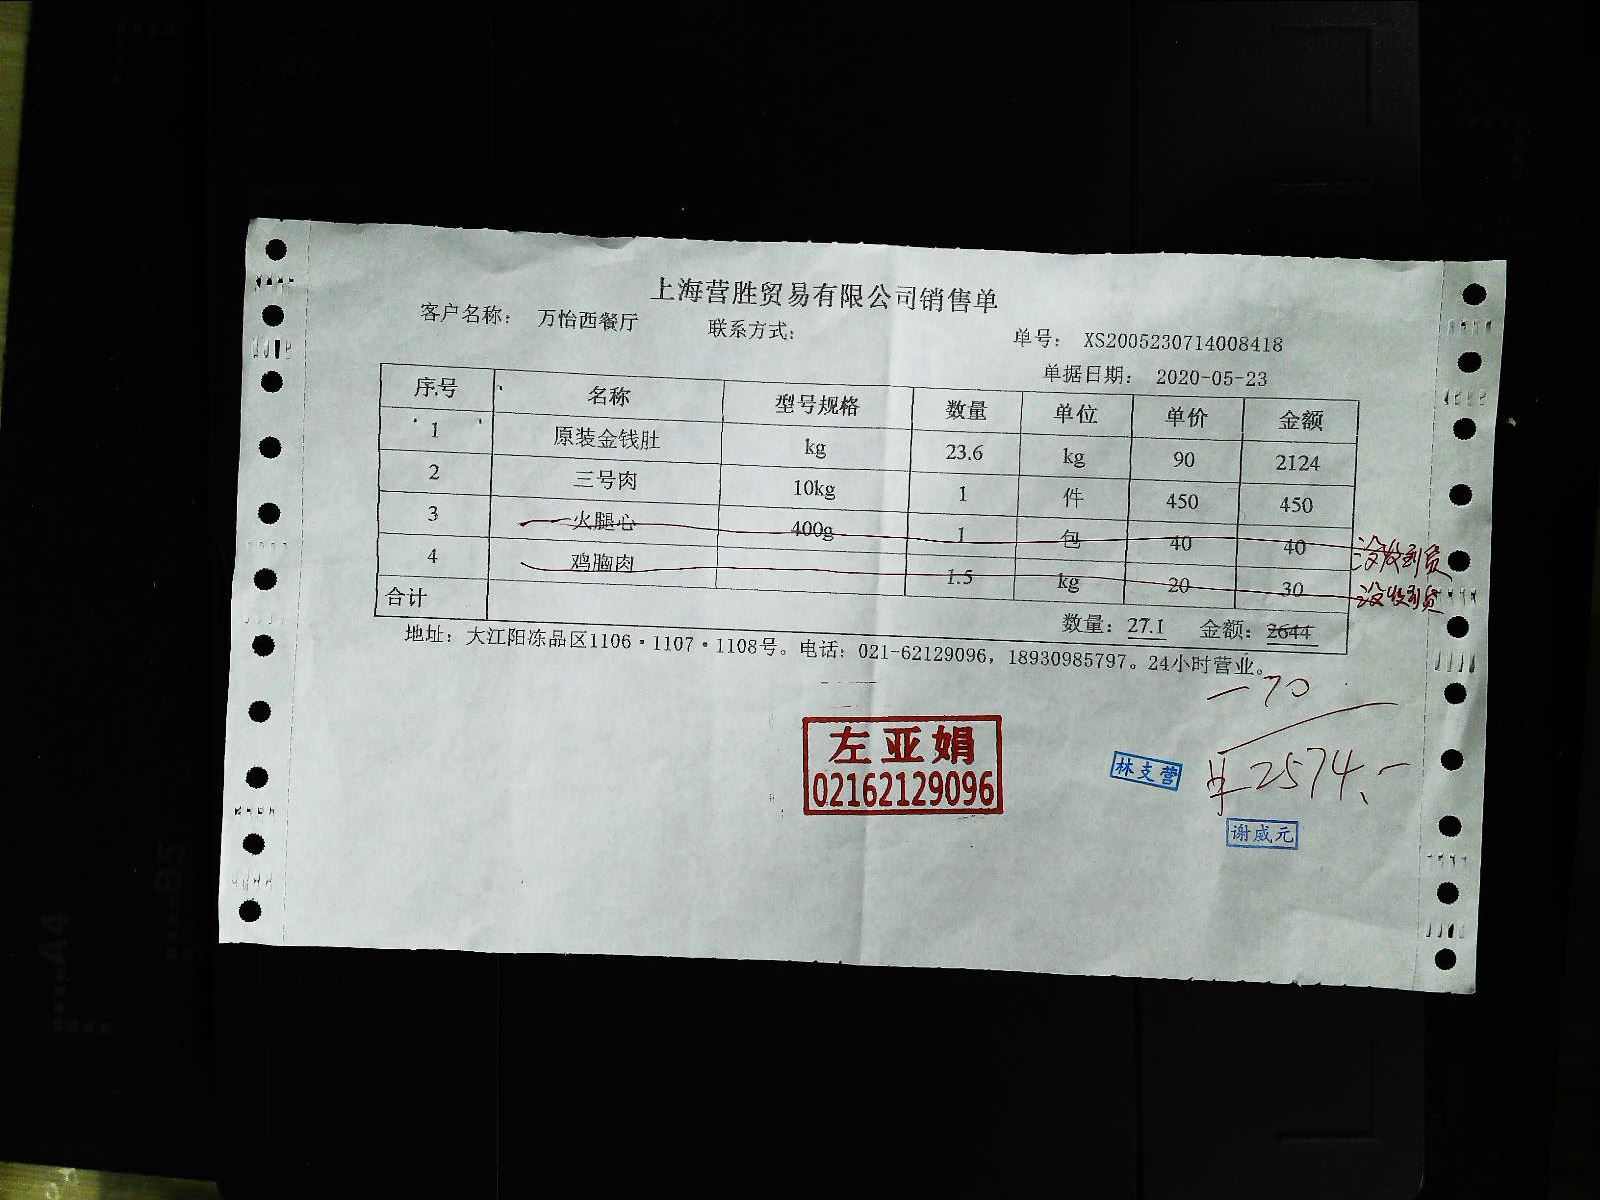 上海营胜贸易有限公司销售单
客户名称： 万怡西餐厅 联系方式： 单号： XS2005230714008418
单据日期： 2020-05-23
序号 名称 型号规格 数量 单位 单价 金额
1 原装金钱肚 kg 23.6 kg 90 2124
2 三号肉 10kg 1 件 450 450
3 火腿心 400g 1 包 40 40 没收到货
4 鸡胸肉 1.5 kg 20 30 没收到货
合计 数量：27.1 金额：2644
地址：大江阳冻品区1106·1107·1108号。电话：021-62129096，18930985797。24小时营业。
-70
¥2574.-
左亚娟
02162129096
林支营
谢威元
A4
B5